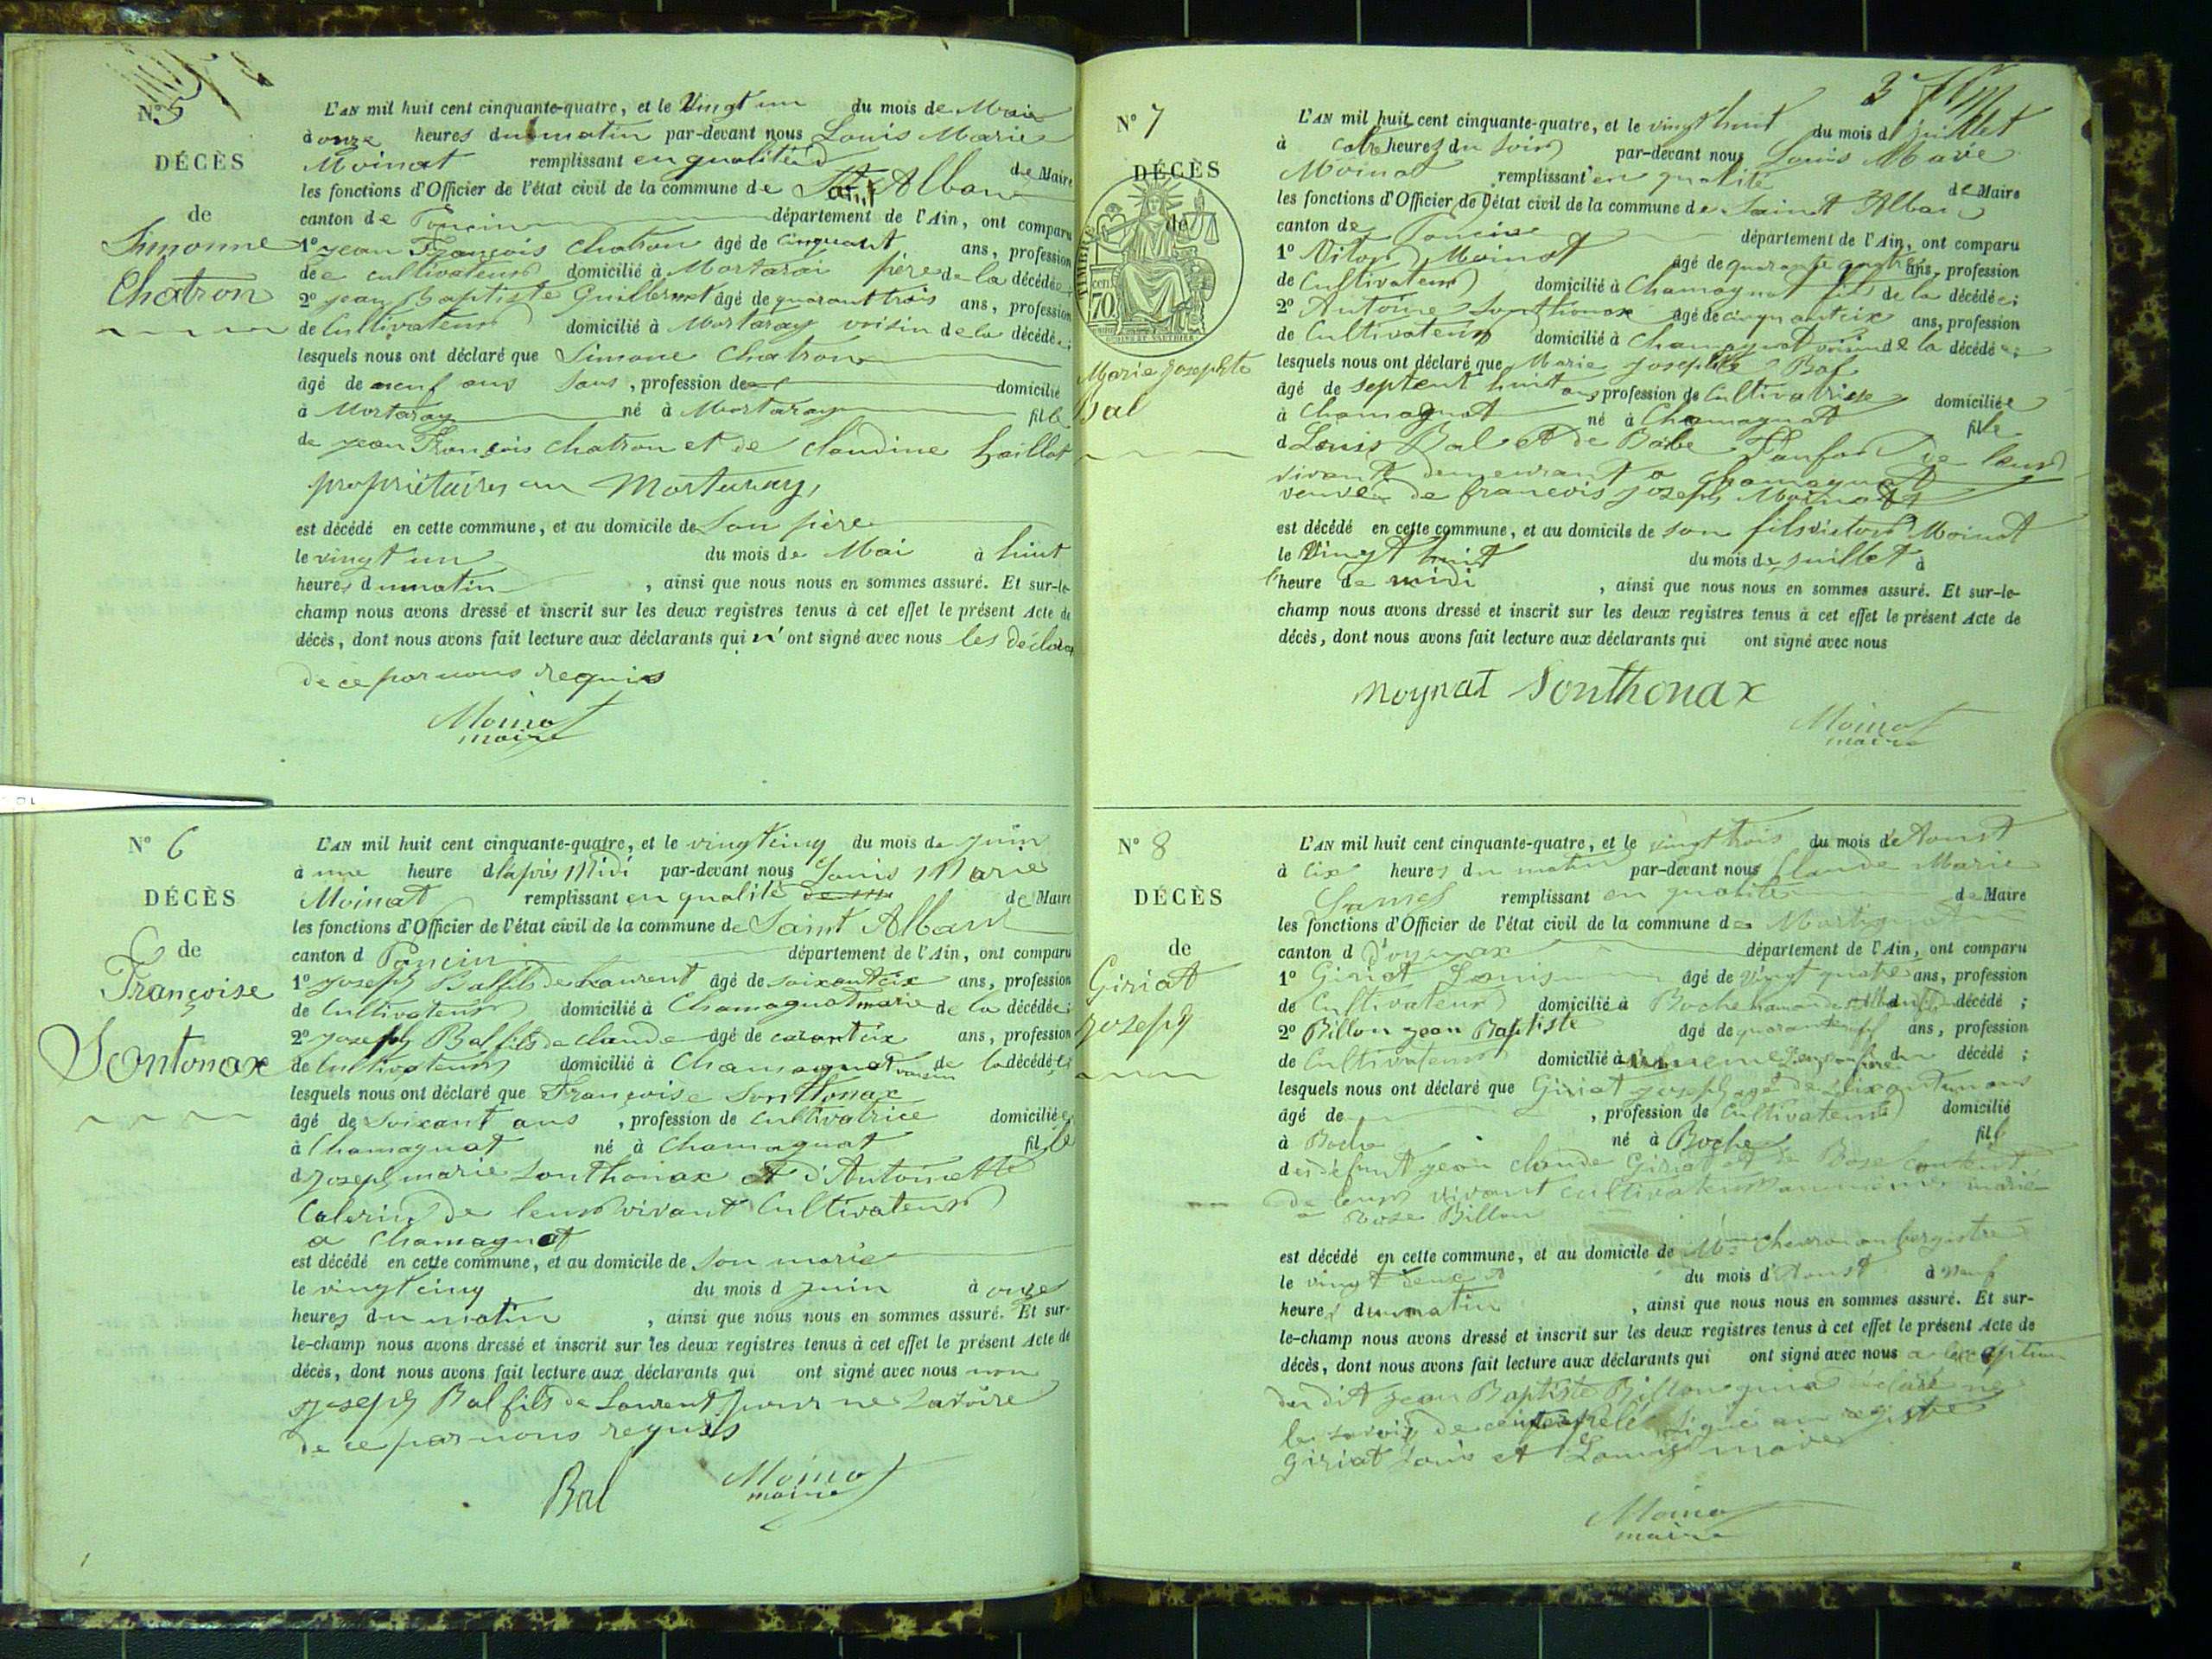 N° 5
DÉCÈS
de
Simonne
Chatron
L'AN mil huit cent cinquante-quatre, et le Vingt un du mois de Mai
à onze heures du matin par-devant nous Louis Marie
Moinat remplissant en qualité de Maire
les fonctions d'Officier de l'état civil de la commune de Saint Alban
canton de Poncin département de l'Ain, ont comparu
1° jean François Chatron âgé de cinquant ans, profession
de cultivateur domicilié à Mortaray père de la décédée
2° jean Baptiste Guillermet âgé de quarant trois ans, profession
de Cultivateur domicilié à Mortaray voisin de la décédée;
lesquels nous ont déclaré que Simone Chatron
âgé de neuf ans sans, profession de domicilié
à Mortaray né à Mortaray fille
de jean François Chatron et de claudine
propriétaires au Mortaray,
est décédé en cette commune, et au domicile de Son père
le vingt un du mois de Mai à huit
heures du matin, ainsi que nous nous en sommes assuré. Et sur-le-
champ nous avons dressé et inscrit sur les deux registres tenus à cet effet le présent Acte de
décès, dont nous avons fait lecture aux déclarants qui n'ont signé avec nous les
de ce par nous requis
Moinat
maire
N° 6
DÉCÈS
de
Françoise
Sontonax
L'AN mil huit cent cinquante-quatre, et le vingt cinq du mois de juin
à une heure d'laprès Midi par-devant nous Louis Marie
Moinat remplissant en qualité de Maire
les fonctions d'Officier de l'état civil de la commune de Saint Alban
canton d Poncin département de l'Ain, ont comparu
1° joseph Bal fils de Laurent âgé de soixant six ans, profession
de Cultivateur domicilié à Chamagnat marie de la décédée;
2° joseph Bal fils de claude âgé de carantsix ans, profession
de Cultivateur domicilié à Chamagnat voisin de la décédée;
lesquels nous ont déclaré que Françoise Sonthonax
âgé de Soixant ans, profession de cultivatrice domiciliée
à Chamagnat né à Chamagnat fille
d joseph marie Sonthonax et d'Antoinette
de leur vivant Cultivateur
a Chamagnat
est décédé en cette commune, et au domicile de son marie
le vingt cinq du mois d juin à onze
heures du matin, ainsi que nous nous en sommes assuré. Et sur-
le-champ nous avons dressé et inscrit sur les deux registres tenus à cet effet le présent Acte de
décès, dont nous avons fait lecture aux déclarants qui ont signé avec nous non
joseph Bal fils de Laurent pour ne Savoire
de ce par nous requis
Bal Moinat
maire
3
N° 7
DÉCÈS
de
TIMBRE
70
Marie josephte
Bal
L'AN mil huit cent cinquante-quatre, et le vingt huit du mois d juillet
à catre heures du Soir par-devant nous Louis Marie
Moinat remplissant en qualité de Maire
les fonctions d'Officier de l'état civil de la commune de Saint Alban
canton de Poncin département de l'Ain, ont comparu
1° Vitor Moinat âgé de quarante quatre ans, profession
de Cultivateur domicilié à Chamagnat fils de la décédée;
2° Antoine Sonthonax âgé de cinquantsix ans, profession
de Cultivateur domicilié à Chamagnat voisin de la décédée;
lesquels nous ont déclaré que Marie josephte Bal
âgé de septent huit ans profession de Cultivatrice domiciliée
à Chamagnat né à Chamagnat fille
d Louis Bal et de Babe de leur
vivant demeurant a chamagnat
veuve de francois joseph Moinat
est décédé en cette commune, et au domicile de son fils victor Moinat
le Vingt huit du mois de juillet à
l'heure de midi, ainsi que nous nous en sommes assuré. Et sur-le-
champ nous avons dressé et inscrit sur les deux registres tenus à cet effet le présent Acte de
décès, dont nous avons fait lecture aux déclarants qui ont signé avec nous
Moynat Sonthonax
Moinat
maire
N° 8
DÉCÈS
de
Giriat
joseph
L'AN mil huit cent cinquante-quatre, et le vingt trois du mois de Aoust
à six heures du matin par-devant nous Claude Marie
remplissant en qualité de Maire
les fonctions d'Officier de l'état civil de la commune de Martignat
canton d D'oyonnax département de l'Ain, ont comparu
1° Giriat Louis âgé de vingt quatre ans, profession
de Cultivateur domicilié à Boche décédé;
2° Billon jean Baptiste âgé de ans, profession
de Cultivateur domicilié à décédé;
lesquels nous ont déclaré que Giriat joseph agé de Soixantun ans
âgé de, profession de Cultivateur domicilié
à Boche né à Boche fil
des défunt jean claude Giriat et de Rose
de leur vivant cultivateur marie
a Rose Billon
est décédé en cette commune, et au domicile de chevron aubergistre
le vingt deux du mois d'Aoust à neuf
heures du matin, ainsi que nous nous en sommes assuré. Et sur-
le-champ nous avons dressé et inscrit sur les deux registres tenus à cet effet le présent Acte de
décès, dont nous avons fait lecture aux déclarants qui ont signé avec nous a lexception
du dit jean Baptiste Billon qui a déclaré ne
le savoir de ce Signé au registre
Giriat Louis et maire
Moinat
maire